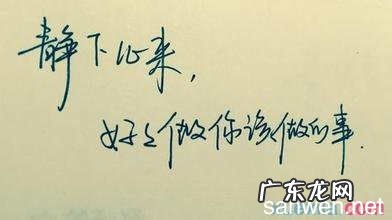 静下心来，
好々做你该做的事.
广东龙网
sanwen.net